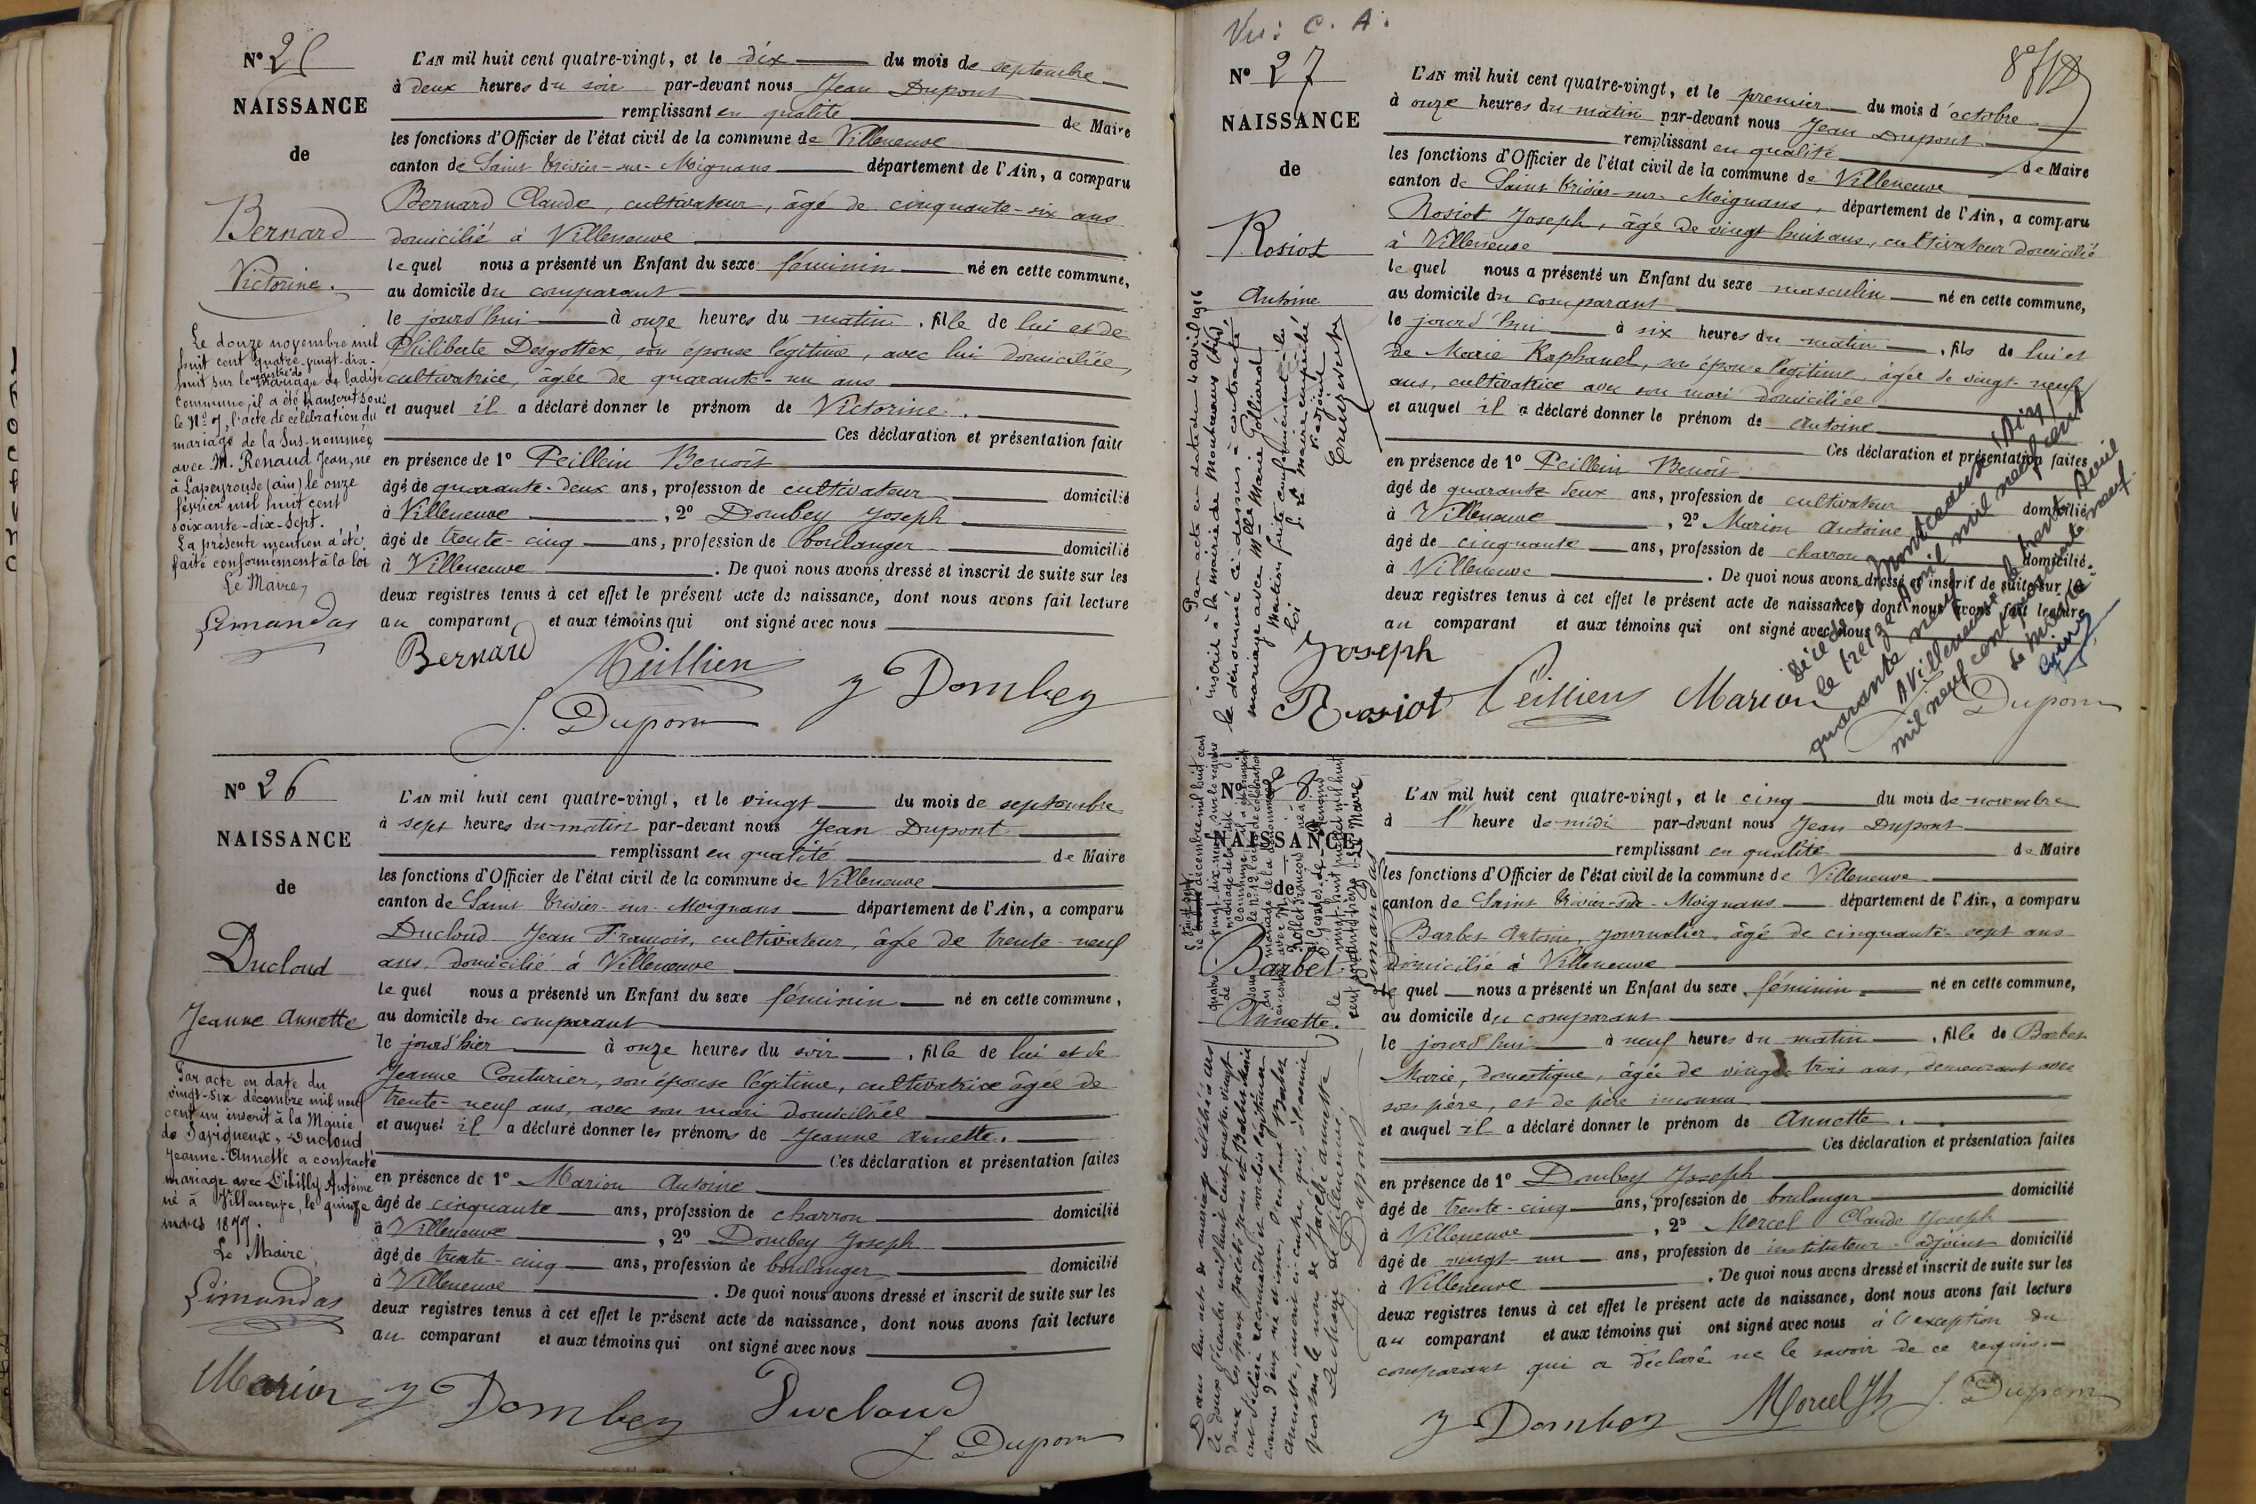 Nº 25
NAISSANCE
de
Bernard
Victorine.
Le douze novembre mil
huit cent quatre-vingt-dix-
huit sur le registre de mariage de ladite
commune, il a été transcrit sous
le Nº 7, l'acte de célébration du
mariage de la sus-nommée
avec M. Renaud Jean, né
à Lapeyrouse (ain) le onze
février mil huit cent
soixante-dix-sept.
La présente mention a été
faite conformément à la loi
Le Maire,
Limandas
L'AN mil huit cent quatre-vingt, et le dix du mois de septembre
à deux heures du soir par-devant nous Jean Dupont
remplissant en qualité de Maire
les fonctions d'Officier de l'état civil de la commune de Villeneuve
canton de Saint Trivier-sur-Moignans département de l'Ain, a comparu
Bernard Claude, cultivateur, âgé de cinquante-six ans
domicilié à Villeneuve
lequel nous a présenté un Enfant du sexe féminin né en cette commune,
au domicile du comparant
le jourd'hui à onze heures du matin, fille de lui et de
Philiberte Desgottex, son épouse légitime, avec lui domiciliée,
cultivatrice, âgée de quarante-un ans
et auquel il a déclaré donner le prénom de Victorine.
Ces déclaration et présentation faites
en présence de 1º Peillein Benoît
âgé de quarante-deux ans, profession de cultivateur domicilié
à Villeneuve, 2º Dombey Joseph
âgé de trente-cinq ans, profession de boulanger domicilié
à Villeneuve. De quoi nous avons dressé et inscrit de suite sur les
deux registres tenus à cet effet le présent acte de naissance, dont nous avons fait lecture
au comparant et aux témoins qui ont signé avec nous
Bernard Peillien J Dombey
J. Dupont
Nº 26
NAISSANCE
de
Ducloud
Jeanne Annette
Par acte en date du
vingt-six décembre mil neuf
cent un inscrit à la Mairie
de Savigneux, Ducloud
Jeanne-Annette a contracté
mariage avec Antoine
né à Villeneuve, le quinze
mars 1877.
Le Maire,
Limandas
L'AN mil huit cent quatre-vingt, et le vingt du mois de septembre
à sept heures du matin par-devant nous Jean Dupont
remplissant en qualité de Maire
les fonctions d'Officier de l'état civil de la commune de Villeneuve
canton de Saint Trivier-sur-Moignans département de l'Ain, a comparu
Ducloud Jean François, cultivateur, âgé de trente-neuf
ans, domicilié à Villeneuve
lequel nous a présenté un Enfant du sexe féminin né en cette commune,
au domicile du comparant
le jourd'hier à onze heures du soir, fille de lui et de
Jeanne Couturier, son épouse légitime, cultivatrice âgée de
trente-neuf ans, avec son mari domiciliée
et auquel il a déclaré donner les prénoms de Jeanne Annette.
Ces déclaration et présentation faites
en présence de 1º Marion Antoine
âgé de cinquante ans, profession de charron domicilié
à Villeneuve, 2º Dombey Joseph
âgé de trente-cinq ans, profession de boulanger domicilié
à Villeneuve. De quoi nous avons dressé et inscrit de suite sur les
deux registres tenus à cet effet le présent acte de naissance, dont nous avons fait lecture
au comparant et aux témoins qui ont signé avec nous
Marion J Dombey Ducloud
J Dupont
Vu: C. A.
Nº 27
NAISSANCE
de
Rosiot
Antoine
Par acte en date du 4 avril 1916
inscrit à la mairie de Montceaux (Ain)
le dénommé ci-dessus à contracté
mariage avec Mlle Marie Polliard
Mention faite conformément à la
loi
P. le maire empêché
L'adjoint
L'AN mil huit cent quatre-vingt, et le premier du mois d'octobre
à onze heures du matin par-devant nous Jean Dupont
remplissant en qualité de Maire
les fonctions d'Officier de l'état civil de la commune de Villeneuve
canton de Saint Trivier-sur-Moignans, département de l'Ain, a comparu
Rosiot Joseph, âgé de vingt huit ans, cultivateur domicilié
à Villeneuve
lequel nous a présenté un Enfant du sexe masculin né en cette commune,
au domicile du comparant
le jourd'hui à six heures du matin, fils de lui et
de Marie Raphanel, son épouse légitime, âgée de vingt-neuf
ans, cultivatrice avec son mari domiciliée
et auquel il a déclaré donner le prénom de Antoine
Ces déclaration et présentation faites
en présence de 1º Peillein Benoît
âgé de quarante deux ans, profession de cultivateur domicilié
à Villeneuve, 2º Marion Antoine
âgé de cinquante ans, profession de charron domicilié
à Villeneuve. De quoi nous avons dressé et inscrit de suite sur les
deux registres tenus à cet effet le présent acte de naissance, dont nous avons fait lecture
au comparant et aux témoins qui ont signé avec nous
Décédé à Montceaux (Ain)
le treize Avril mil neuf cent
quarante neuf
A Villeneuve le trente Avril
mil neuf cent quarante neuf.
le Maire
Joseph
Rosiot Peillien Marion Dupont
Nº 28
NAISSANCE
de
Barbet
Annette.
Limandas
L'AN mil huit cent quatre-vingt, et le cinq du mois de novembre
à 1 heure de midi par-devant nous Jean Dupont
remplissant en qualité de Maire
les fonctions d'Officier de l'état civil de la commune de Villeneuve
canton de Saint Trivier-sur-Moignans département de l'Ain, a comparu
Barbet Antoine, journalier, âgé de cinquante-sept ans
domicilié à Villeneuve
lequel nous a présenté un Enfant du sexe féminin né en cette commune,
au domicile du comparant
le jourd'hui à neuf heures du matin, fille de Barbet
Marie, domestique, âgée de vingt trois ans, demeurant avec
son père, et de père inconnu
et auquel il a déclaré donner le prénom de Annette.
Ces déclaration et présentation faites
en présence de 1º Dombey Joseph
âgé de trente-cinq ans, profession de boulanger domicilié
à Villeneuve, 2º Morcel Claude Joseph
âgé de vingt-un ans, profession de instituteur-adjoint domicilié
à Villeneuve. De quoi nous avons dressé et inscrit de suite sur les
deux registres tenus à cet effet le présent acte de naissance, dont nous avons fait lecture
au comparant et aux témoins qui ont signé avec nous à l'exception du
comparant qui a déclaré ne le savoir de ce requis.
J Dombey Morcel Jh J. Dupont